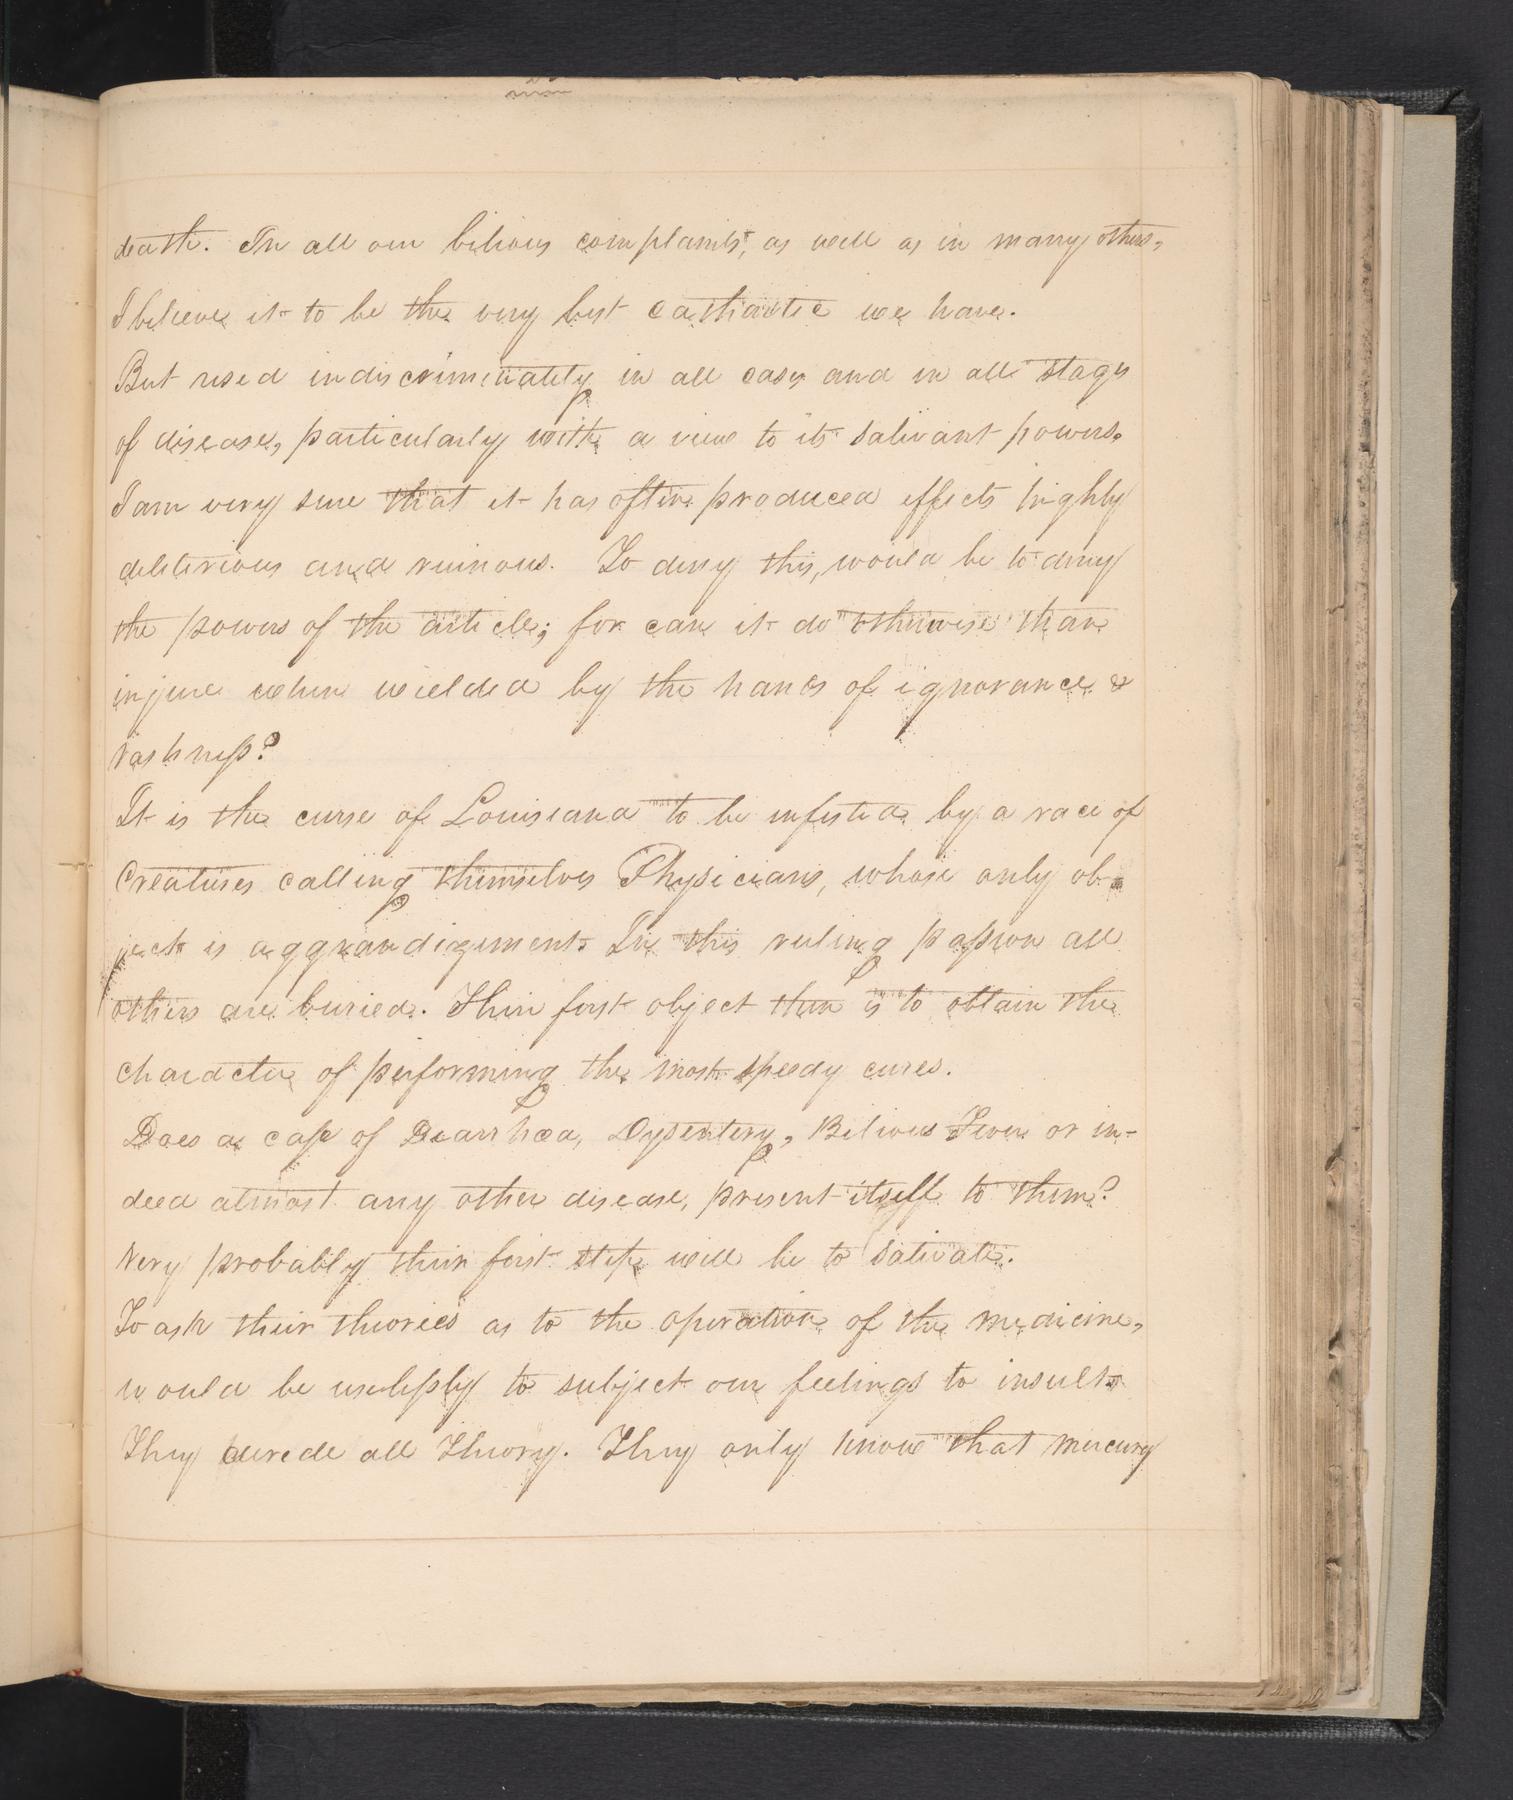 death. In all our bilious complaints, as well as in many others,
I believe it to be the very best cathartic we have.
But used indiscriminately in all cases and in all stages
of disease, particularly with a view to its salivant powers,
I am very sure that it has often produced effects highly
deleterious and ruinous. To deny this, would be to deny
the powers of the article; for can it do otherwise than
injure when wielded by the hands of ignorance &
rashness?
It is the curse of Louisiana to be infested by a race of
Creatures calling themselves Physicians, whose only ob-
ject is aggrandizement. In this ruling passion all
others are buried. Their first object then is to obtain the
character of performing the most speedy cures.
Does a case of Diarrhœa, Dysentery, Bilious Fever or in-
deed almost any other disease, present itself to them?
Very probably their first step will be to Salivate.
To ask their theories as to the operation of the medicine,
would be uselessly to subject our feelings to insult.
They deride all Theory. They only know that mercury